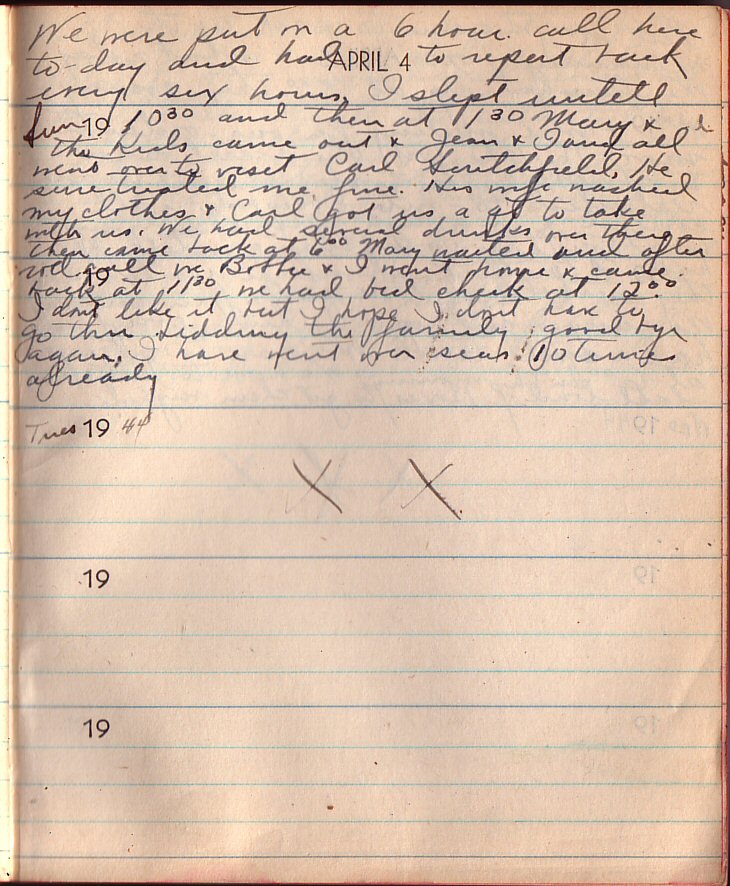 We were put on a 6 hour call here
to-day and had to report back
APRIL 4
every six hours, I slept untell
Sun 19 10 30 and then at 1 30 Mary &
the Kids came out & Jean & I and all
went over to visit Carl Scritchfield. He
sure treated me fine. His wife washed
my clothes & Carl got us a qt to take
with us. We had several drinks over there
then came back at 6 00 Mary waited and after
roll call we Bobbie & I went home & came
19
back at 11 30 we had bed check at 12 00
I dont like it but I hope I dont have to
go thru bidding the family good bye
again. I have went over seas 10 times
already
Tues 19 44
X X
19
19